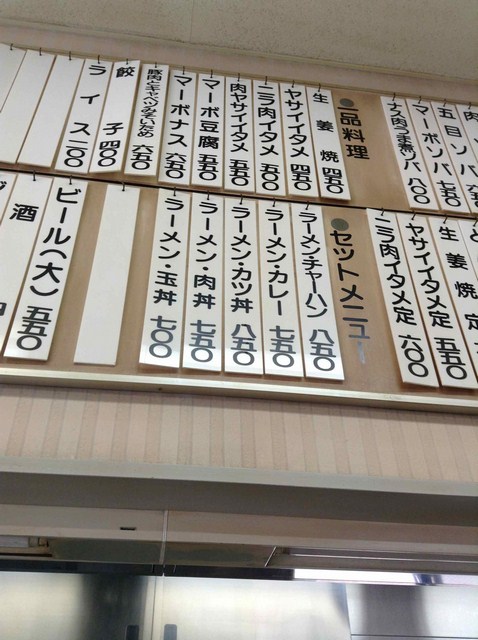 肉
五目ソバ
マーボソバ 七五〇
ナス肉うま煮ソバ 八〇〇
●一品料理
生姜焼 四五〇
ヤサイイタメ 四五〇
ニラ肉イタメ 五五〇
肉ヤサイイタメ 五五〇
マーボ豆腐 五五〇
マーボナス 六五〇
豚肉とキャベツみそいため 六五〇
餃子 四〇〇
ライス 二〇〇
生姜焼定
ヤサイイタメ定 五五〇
ニラ肉イタメ定 六〇〇
●セットメニュー
ラーメン・チャーハン 八五〇
ラーメン・カレー 七五〇
ラーメン・カツ丼 八五〇
ラーメン・肉丼 七五〇
ラーメン・玉丼 七〇〇
ビール(大) 五五〇
酒